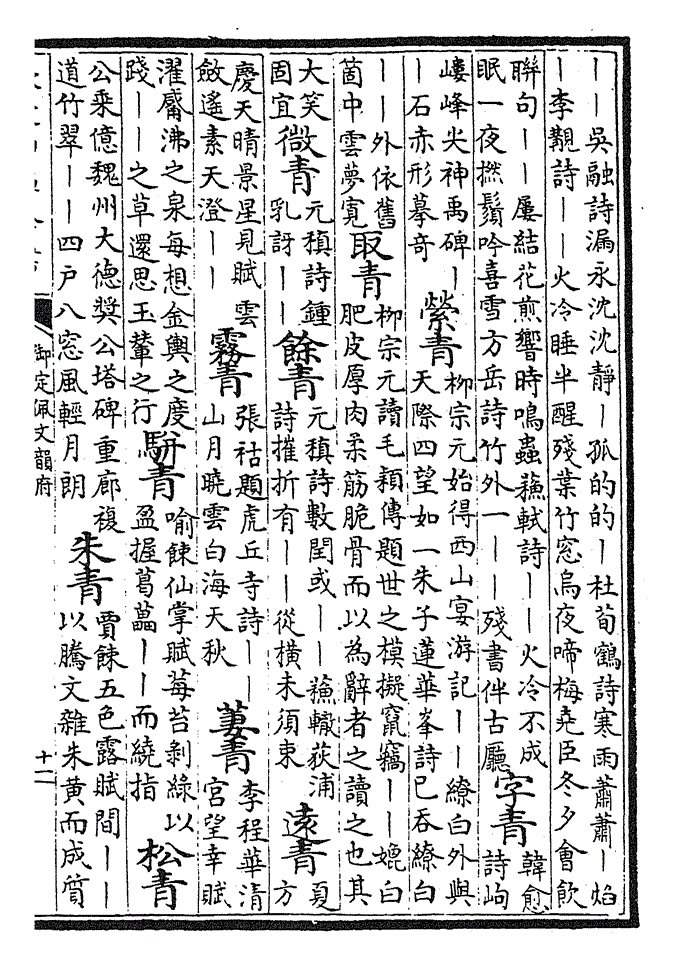 ——吳融詩漏永沈沈靜—孤的的—杜荀鶴詩寒雨蕭蕭—焰
—李覯詩——火冷睡半醒殘葉竹窓烏夜啼梅堯臣冬夕會飲
聯句——屢結花煎響時鳴蟲蘇軾詩——火冷不成
眠一夜撚鬚吟喜雪方岳詩竹外一——殘書伴古廳
字青
韓愈
詩岣
嶁峰尖神禹碑—
—石赤形摹奇
縈青
柳宗元始得西山宴游記——繚白外與
天際四望如一朱子蓮華峯詩已吞繚白
——外依舊
箇中雲夢寛
取青
柳宗元讀毛穎傳題世之模擬竄竊——媲白
肥皮厚肉柔筋脆骨而以為辭者之讀之也其
大笑
固宜
微青
元稹詩鍾
乳訝——
餘青
元稹詩數閏或——蘇轍荻浦
詩摧折有——從橫未須束
遠青
夏
方
慶天晴景星見賦雲
斂遙素天澄——
霧青
張祜題虎丘寺詩——
山月曉雲白海天秋
蔞青
李程華清
宮望幸賦
濯觱沸之泉每想金輿之度
踐——之草還思玉輦之行
駢青
喻餗仙掌賦莓苔剝綠以
盈握葛藟——而繞指
松青
公乘億魏州大德奬公塔碑重廊複
道竹翠——四戸八窓風輕月朗
朱青
賈餗五色露賦間——
以騰文雜朱黃而成質
御定佩文韻府
十二